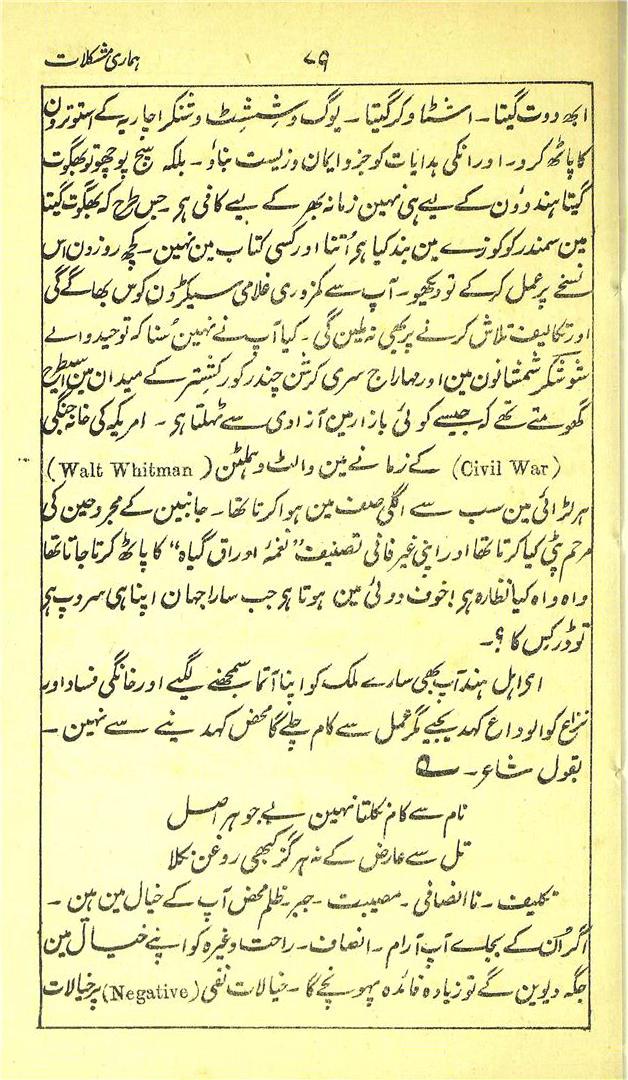 ہماری مشکلات ۷۹
ابھ دوت گیتا۔ اشٹا وکر گیتا۔ یوگ وشِشٹ و شنکر اچاریہ کے استوترون
کا پاٹھ کرو۔ اور انکی ہدایات کو جزو ایمان و زیست بناؤ۔ بلکہ سچ پوچھو تو بھگوت
گیتا ہندوؤن کے لیے ہی نہین زمانہ بھر کے لیے کافی ہو۔ جس طرح کہ بھگوت گیتا
مین سمندر کو کوزے مین بند کیا ہو اُتنا اور کسی کتاب مین نہین۔ کچھ روز ون اس
نسخے پر عمل کر کے تو دیکھو۔ آپ سے کمزوری غلامی سیکڑون کوس بھاگے گی
اور تکالیف تلاش کرنے پر بھی نہ ملین گی۔ کیا آپ نے نہین سُنا کہ توحید والے
شو شنکر شمشانون مین اور مہاراج سری کرشن چندر کورکشتر کے میدان مین اسیطرح
گھومتے تھے کہ جیسے کوئی بازار مین آزادی سے ٹہلتا ہو۔ امریکہ کی خانہ جنگی
(Civil War) کے زمانے مین والٹ وہٹمن (Walt Whitman)
ہر لڑائی مین سب سے اگلی صف مین ہوا کرتا تھا۔ جانبین کے مجروحین کی
مرہم پٹی کیا کرتا تھا اور اپنی غیر فانی تصنیف "نغمۂ اوراق گیاہ" کا پاٹھ کرتا جاتا تھا
واہ واہ کیا نظارہ ہو! خوف دوئی مین ہوتا ہو جب سارا جہان اپنا ہی سروپ ہو
تو ڈر کس کا؟۔
ای اہل ہند آپ بھی سارے ملک کو اپنا آتما سمجھنے لگیے اور خانگی فساد اور
نزاع کو الوداع کہدیجیے مگر عمل سے کام چلے گا محض کہدینے سے نہین۔
بقول شاعر۔ ؎
نام سے کام نکلتا نہین بے جوہر اصل
تل سے عارض کے نہ ہرگز کبھی روغن نکلا
تکلیف۔ نا انصافی۔ مصیبت۔ جبر۔ ظلم محض آپ کے خیال مین ہین۔
اگر اُن کے بجاے آپ آرام۔ انصاف۔ راحت وغیرہ کو اپنے خیال مین
جگہ دیوین گے تو زیادہ فائدہ پہونچے گا۔ خیالات نفی (Negative) پر خیالات